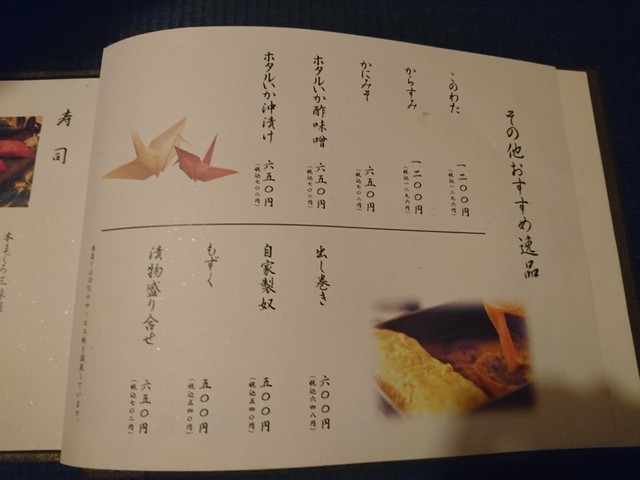 その他おすすめ逸品
このわた
一二〇〇円
(税込一二九六円)
からすみ
一二〇〇円
(税込一二九六円)
かにみそ
六五〇円
(税込七〇二円)
ホタルいか酢味噌
六五〇円
(税込七〇二円)
ホタルいか沖漬け
六五〇円
(税込七〇二円)
出し巻き
六〇〇円
(税込六四八円)
自家製奴
五〇〇円
(税込五四〇円)
もずく
五〇〇円
(税込五四〇円)
漬物盛り合せ
六五〇円
(税込七〇二円)
寿司